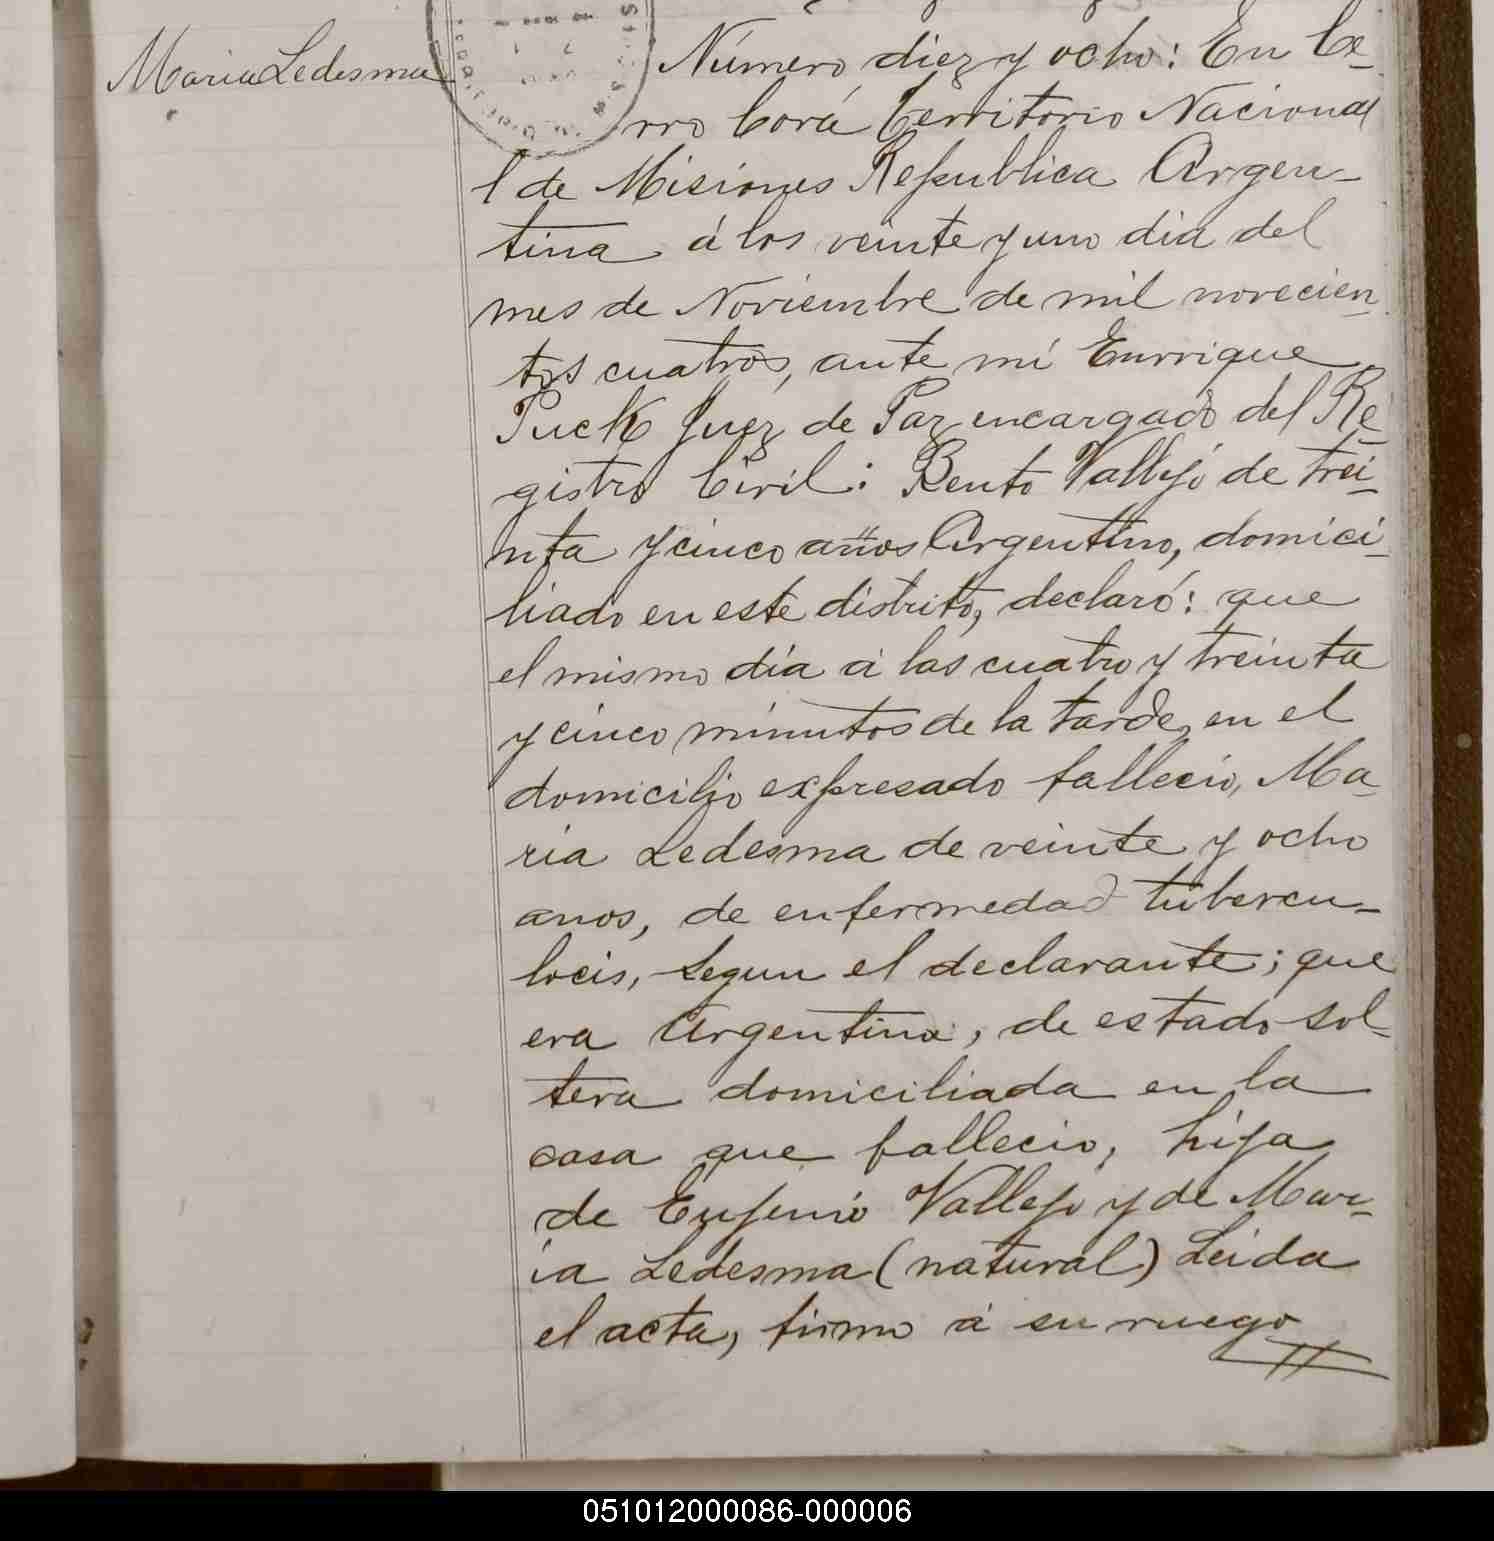 Maria Ledesma
Número diez y ocho: En Ce-
rro Corá Territorio Nacional
l de Misiones Republica Argen-
tina á los veinte y uno dia del
mes de Noviembre de mil novecien-
tos cuatros, ante mí Enrrique
Puck Juez de Paz encargado del Re-
gistro Civil: Bento Vallejo de trei-
nta y cinco años Argentino, domici-
liado en este distrito, declaró: que
el mismo día á las cuatro y treinta
y cinco minutos de la tarde, en el
domicilio expresado fallecio, Ma-
ria Ledesma de veinte y ocho
anos, de enfermedad tubercu-
locis, segun el declarante; que
era Argentina, de estado sol-
tera domiciliada en la
casa que fallecio, hija
de Eujenio Vallejo y de Mar-
ia Ledesma (natural) Leida
el acta, firmo á su ruego
051012000086-000006